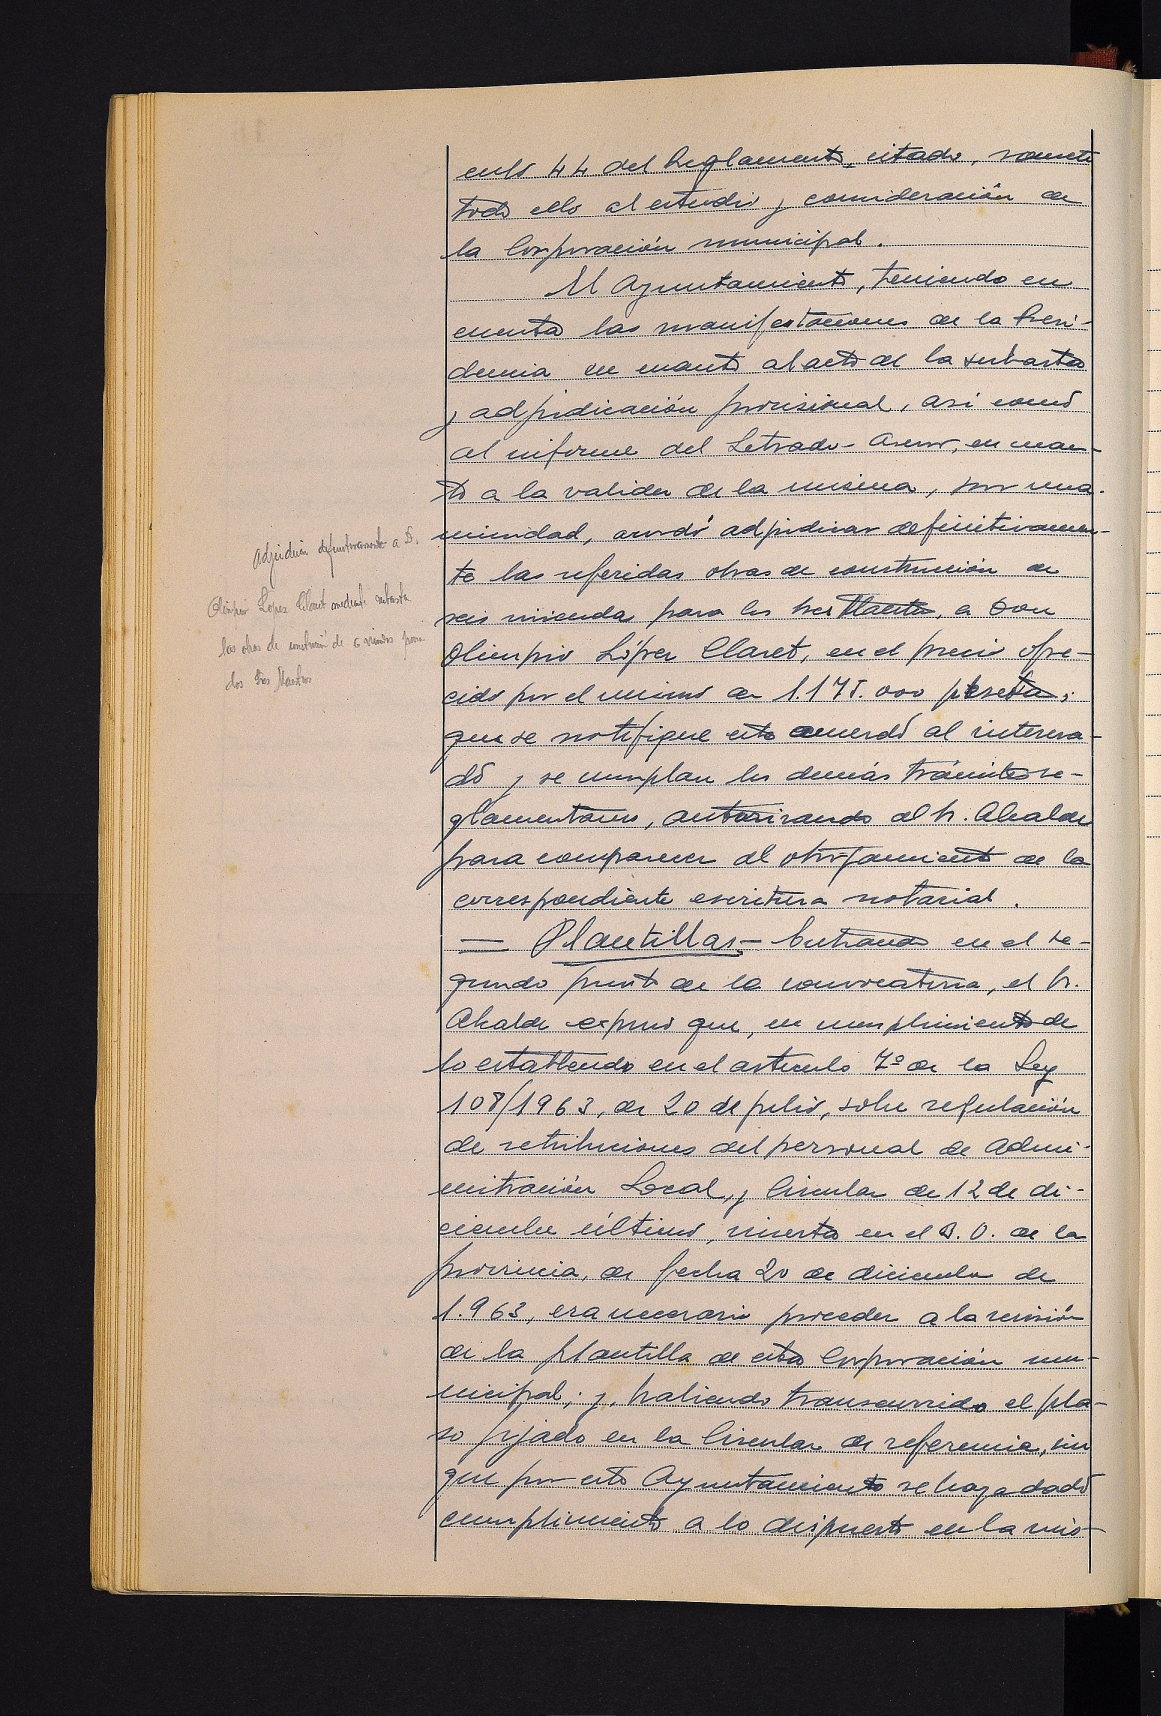 culo 44 del Reglamento citado, somete
todo ello al estudio y consideración de
la Corporación municipal.
El Ayuntamiento, teniendo en
cuenta las manifestaciones de la Presi-
dencia en cuanto al acto de la subasta
y adjudicación provisional, así como
al informe del Letrado-Asesor, en cuan-
to a la validez de la misma, por una-
nimidad, acordó adjudicar definitivamen-
te las referidas obras de construcción de
seis vivienda para los Maestros, a Don
Olimpio López Claret, en el precio ofre-
cido por el mismo de 1.175.000 pesetas;
que se notifique este acuerdo al interesa-
do y se cumplan los demás trámites re-
glamentarios, autorizando al Sr. Alcalde
para comparecer al otorgamiento de la
correspondiente escritura notarial.
— Plantillas.- Entrando en el se-
gundo punto de la convocatoria, el Sr.
Alcalde expuso que, en cumplimiento de
lo establecido en el artículo 7º de la Ley
108/1963, de 20 de julio, sobre regulación
de retribuciones del personal de Admi-
nistración Local, y Circular de 12 de di-
ciembre último, inserta en el B.O. de la
provincia, de fecha 20 de diciembre de
1.963, era necesario proceder a la revisión
de la plantilla de esta Corporación mu-
nicipal; y, habiendo transcurrido el pla-
zo fijado en la Circular de referencia, sin
que por este Ayuntamiento se haya dado
cumplimiento a lo dispuesto en la mis-
definitivamente a D.
Olimpio Lopez Claret mediante subasta
las obras de de 6 para
los Maestros